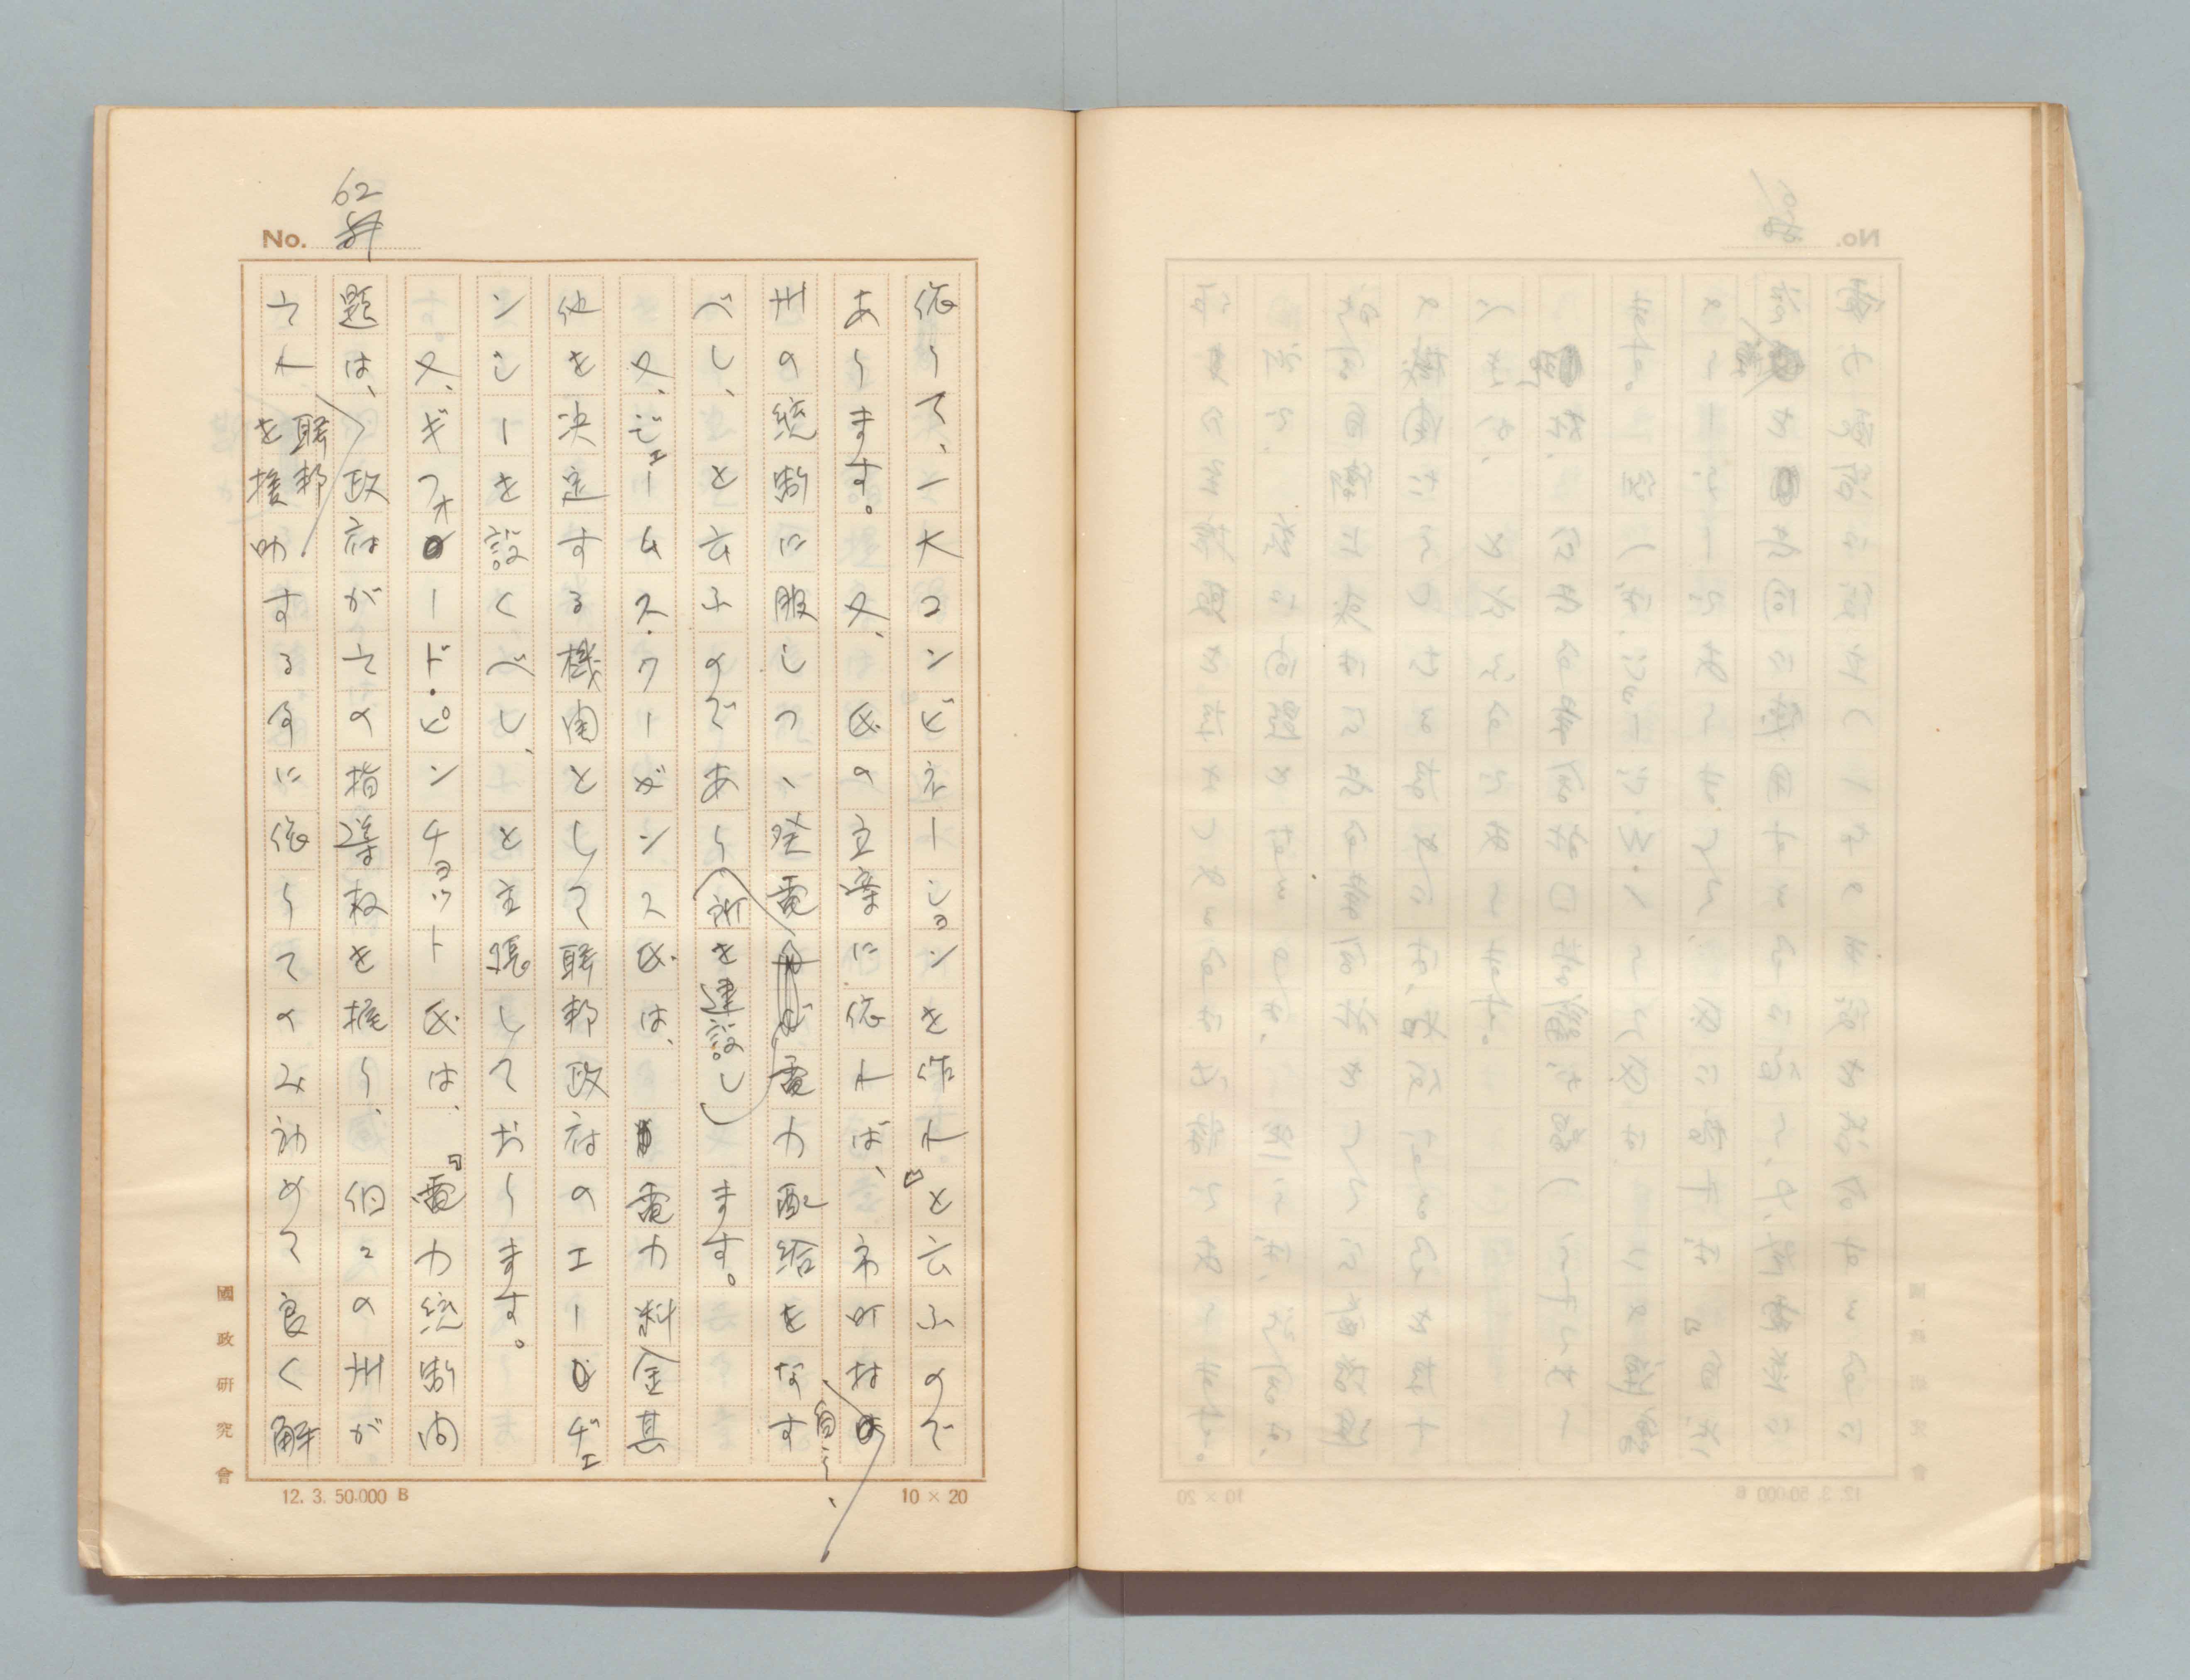 62
No.
依りて、一大コンビネーションを作れ』と云ふので
あります。又、氏の立案に依れば、市町村は
自ら、
州の統制に服しつゝ発電所を建設し電力配給をなす
べし、と云ふのであります。
又、ジェームス・クーガンス氏は、電力料金其
他を決定する機関として聯邦政府のエーヂェ
ンシーを設くべし、と主張しております。
又、ギフォード・ピンチョット氏は、『電力統制問
題は、聯邦政府が之の指導権を握り、個々の州が
之れを援助する事に依りてのみ初めて良く解
國政研究會
12. 3. 50.000 B
10 × 20